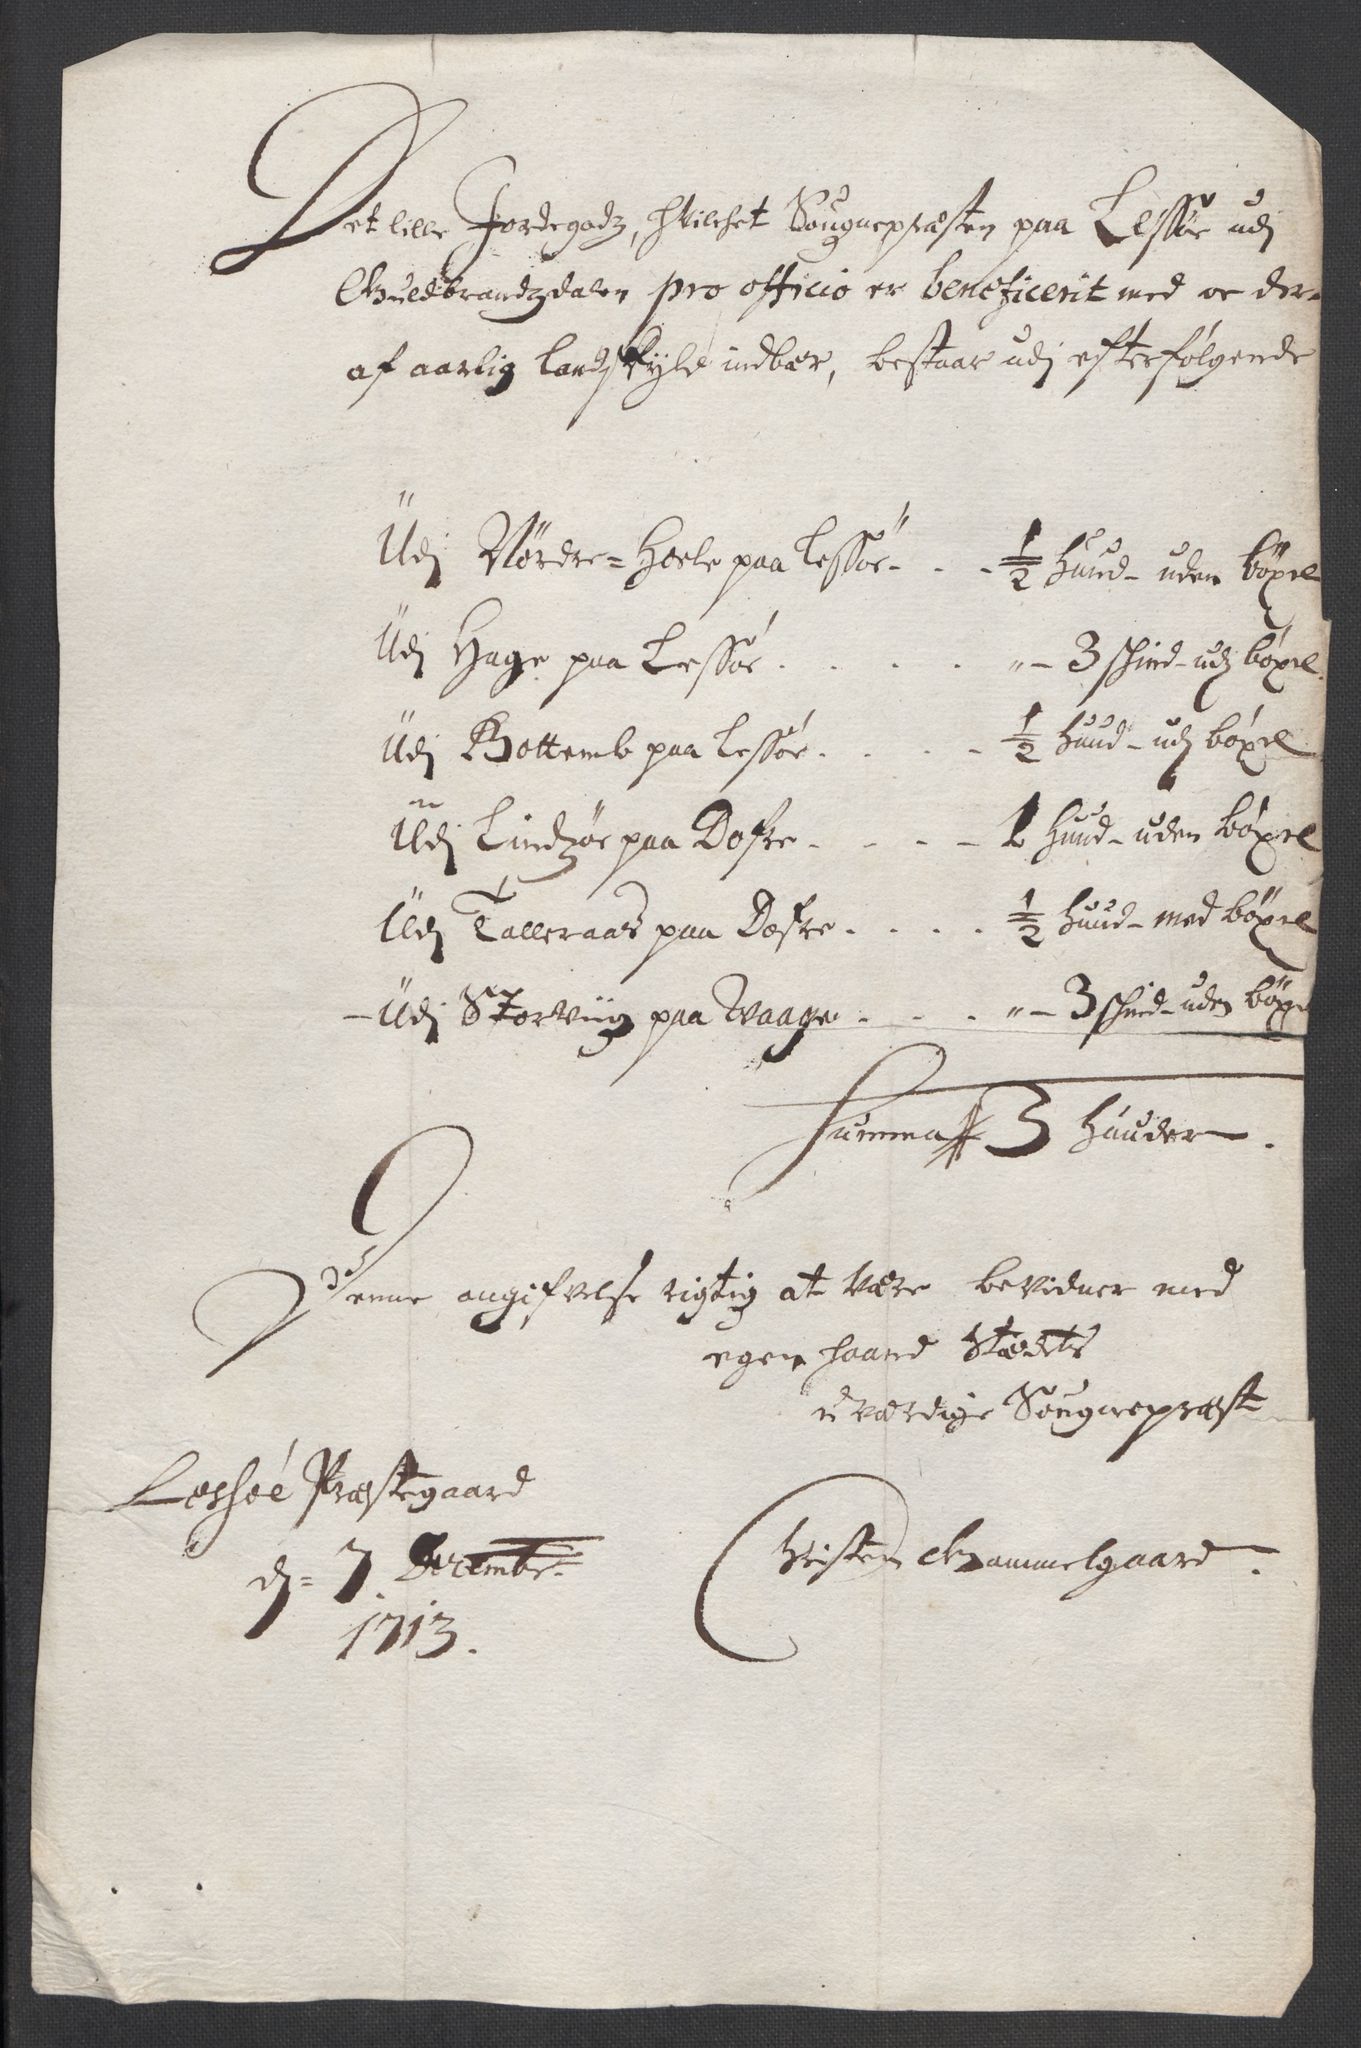 Det lille Jordegodz, hvilchet Sougnepræsten paa Lessøe udj
Guldbrandzdalen pro officio er beneficerit med oc der-
af aarlig Landskyld indbær, bestaar udj efterfølgende
Udj Nørdre-Hoele paa Lessøe - - - ½ huud - uden bøxel
Udj Hage paa Lessøe . . . . " - 3 skind - udj bøxel
Udj Bottemb paa Lessøe . . . - ½ huud - udj bøxel
Udj Lindzøe paa Dofre - - - - 1 huud - uden bøxel
Udj Talleraas paa Dofre . . . . ½ huud - med bøxel
- Udj Storviig paa Waage . . . " - 3 skind - uden bøxe
Summa 3 huuder .
Denne angifvelse rigtig at være bevidner med
egen haand Stædets
uværdige Sougnepræst
Lessøe Præstegaard
dj = 7 Decembr.
1713.
Christen Gammelgaard.